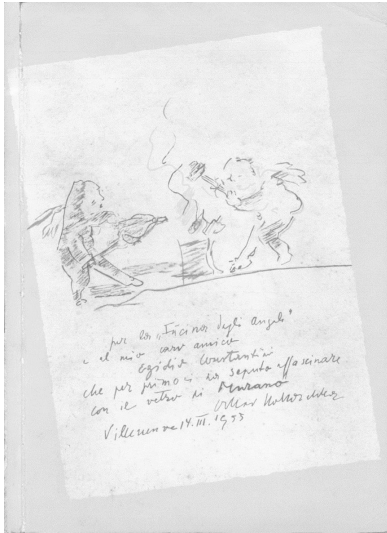 per la „Fucina degli Angeli"
e al mio caro amico
Egidio Constantini
che per primo mi ha saputo affascinare
con il vetro di Murano
Oskar Kokoschka
Villeneuve 14.III.1953